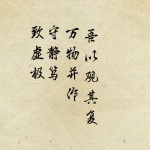 致虚极
守静笃
万物并作
吾以观其复